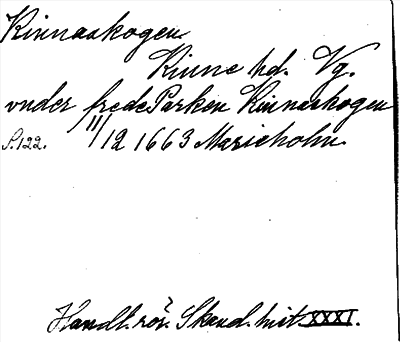 Kinnaskogen
Kinne hd. Vg.
under frede Parken Kinnaskogen
S. 122. 11/12 1663 Marieholm.
Handl. rör. Skand. hist. XXXI.